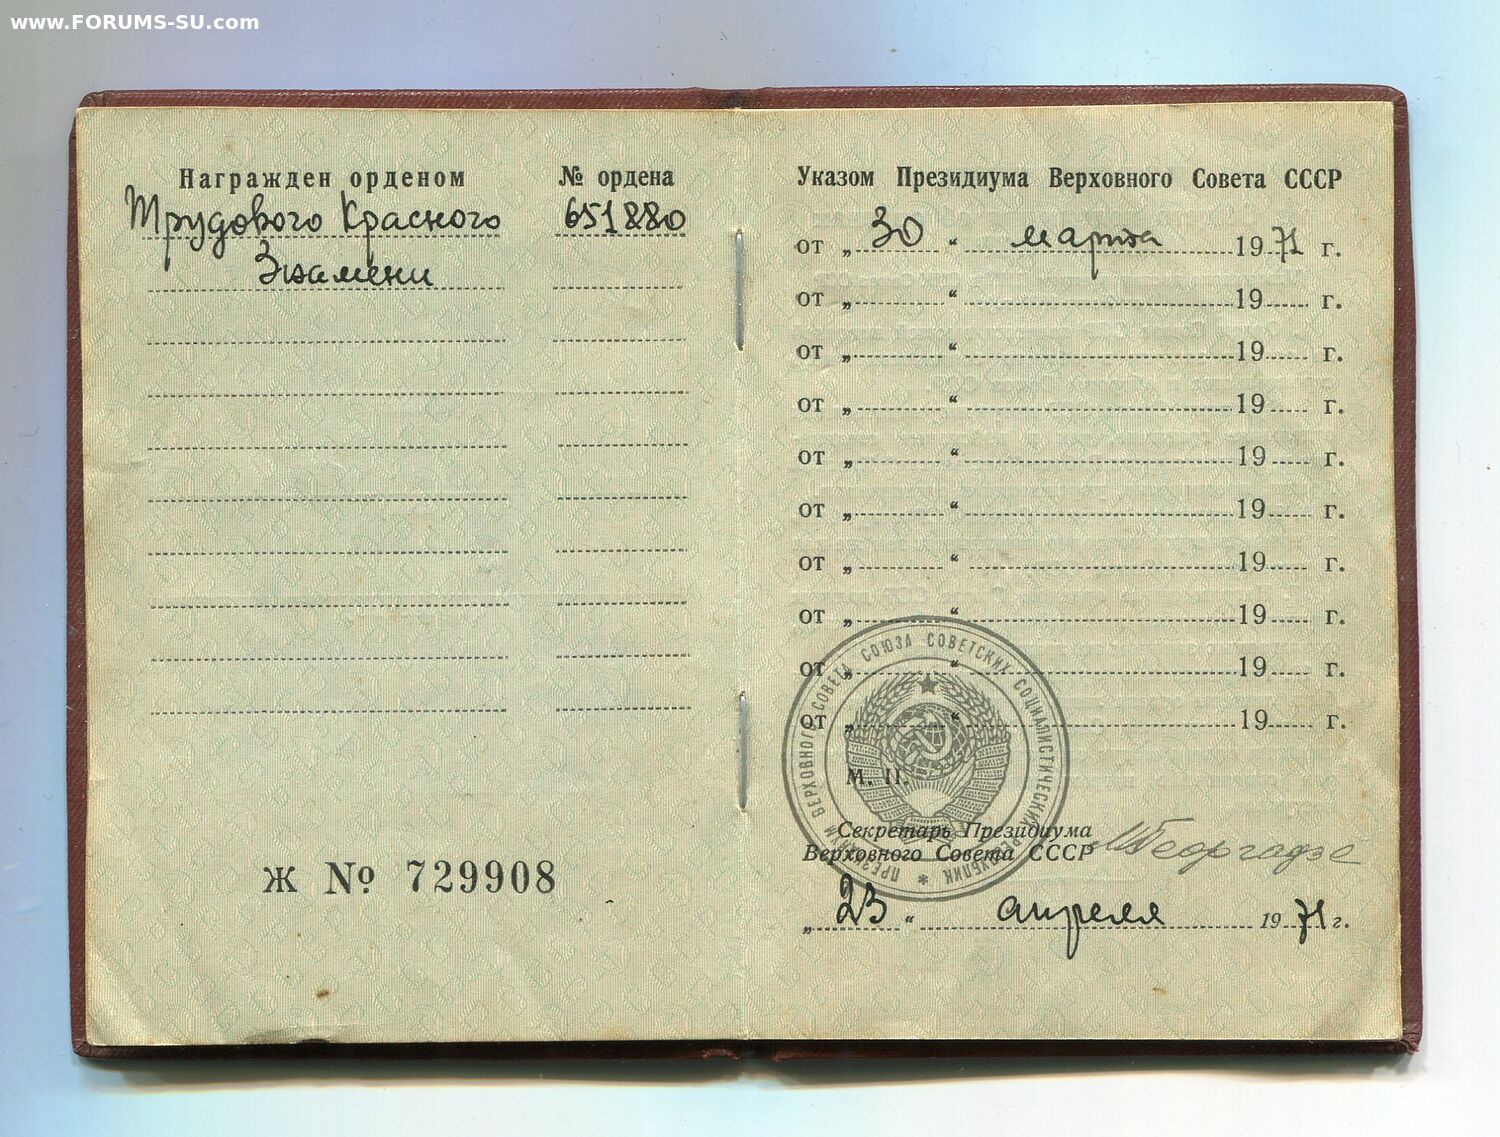 www.FORUMS-SU.com
Награжден орденом № ордена
Трудового Красного 651880
Знамени
Ж № 729908
Указом Президиума Верховного Совета СССР
от „ 30 “ марта 1971 г.
от „ “ 19 г.
от „ “ 19 г.
от „ “ 19 г.
от „ “ 19 г.
от „ “ 19 г.
от „ “ 19 г.
от „ “ 19 г.
от „ “ 19 г.
от „ “ 19 г.
ПРЕЗИДИУМ ВЕРХОВНОГО СОВЕТА СОЮЗА СОВЕТСКИХ СОЦИАЛИСТИЧЕСКИХ РЕСПУБЛИК *
М. П.
Секретарь Президиума
Верховного Совета СССР МГеоргадзе
„ 23 “ апреля 1971 г.